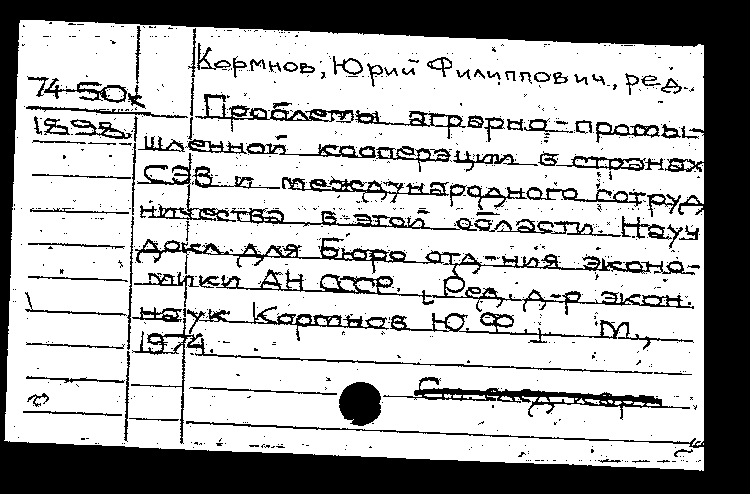 Кормнов, Юрий Филиппович, ред.
74-50к
1898
Проблемы аграрно-промы-
шленной кооперации в странах
СЭВ и международного сотруд
ничества в этой области. Науч
докл. для Бюро отд-ния эконо-
мики АН СССР. [Ред. д-р экон.
наук Кормнов Ю.Ф.]. М.,
1974.
См. след. карт